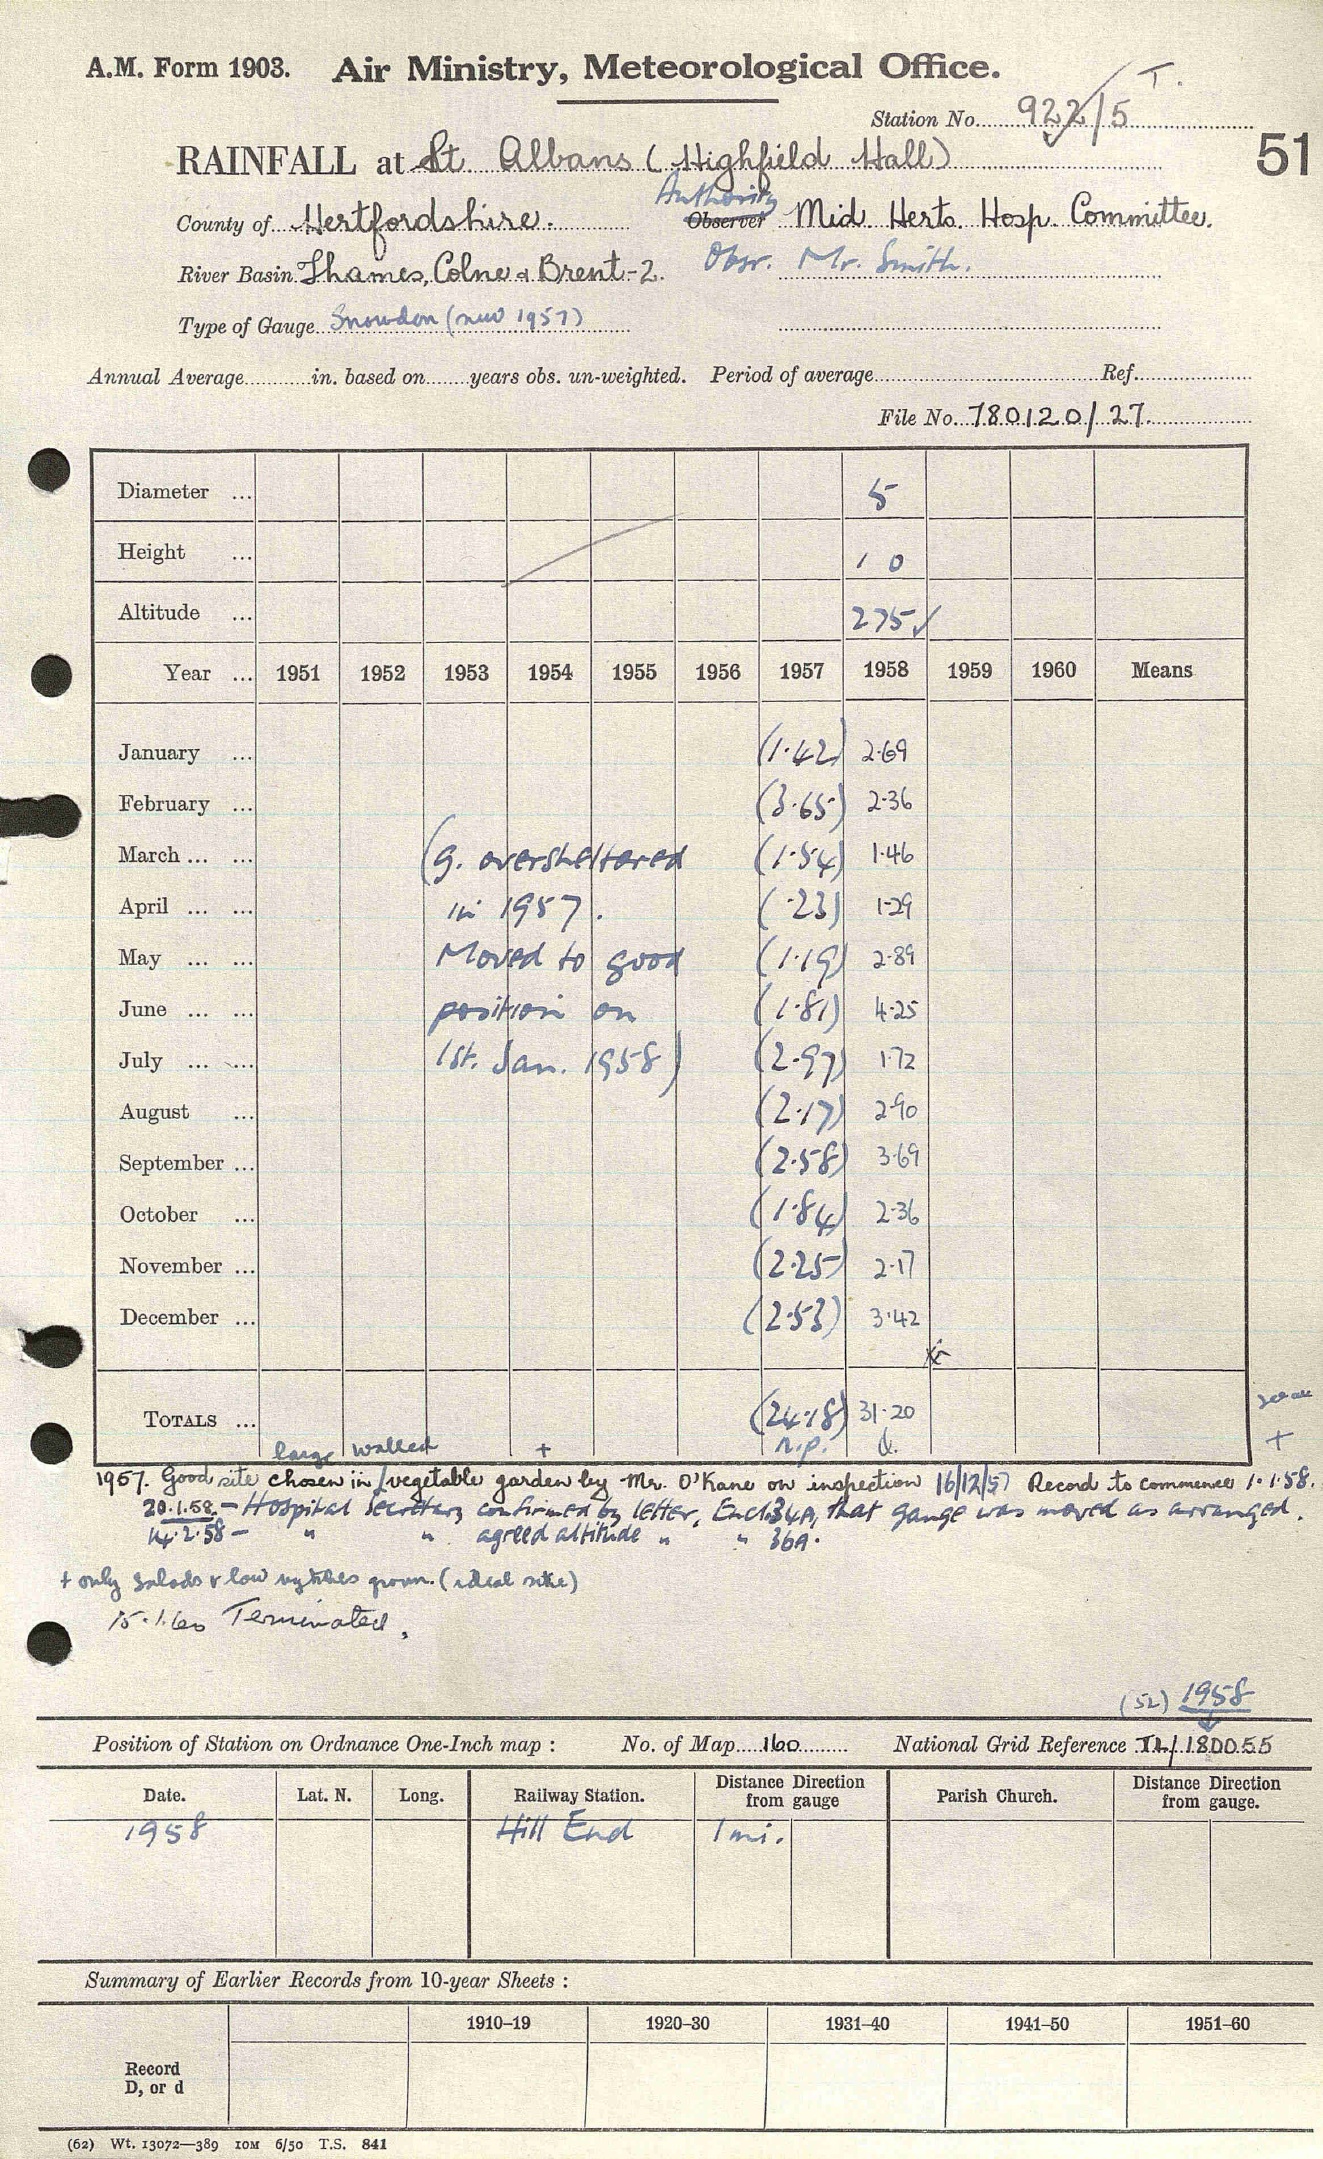 A.M. Form 1903. Air Ministry, Meteorological Office.
T.
Station No. 922/5
51
RAINFALL at St. Albans (Highfield Hall)
Authority
County of Hertfordshire. Observer Mid Herts. Hosp. Committee.
River Basin Thames, Colne & Brent-2. Obsr. Mr. Smith.
Type of Gauge Snowdon (new 1957)
Annual Average in. based on years obs. un-weighted. Period of average Ref.
File No. 780120/27.
Diameter ... 5
Height ... 1 0
Altitude ... 275 ✓
Year ... 1951 1952 1953 1954 1955 1956 1957 1958 1959 1960 Means
January ... (1.42) 2.69
February ... (3.65) 2.36
March ... ... (g. oversheltered (1.54) 1.46
April ... ... in 1957. (.23) 1.29
May ... ... Moved to good (1.19) 2.89
June ... ... position on (1.81) 4.25
July ... ... 1st. Jan. 1958) (2.97) 1.72
August ... (2.17) 2.90
September ... (2.58) 3.69
October ... (1.84) 2.36
November ... (2.25) 2.17
December ... (2.53) 3.42
TOTALS ... (24.18) 31.20
n.p. d.
large walled + +
1957. Good site chosen in / vegetable garden by Mr. O'Kane on inspection 16/12/57 Record to commence 1.1.58.
20.1.58. - Hospital Secretary confirmed by letter, Encl. 34A, that gauge was moved as arranged.
14.2.58 - " " agreed altitude " " 36A.
+ only salads & low vegtables grown. (ideal site)
15.1.60 Terminated.
(52) 1958
Position of Station on Ordnance One-Inch map : No. of Map 160 National Grid Reference TL/180055
Date. Lat. N. Long. Railway Station. Distance Direction from gauge Parish Church. Distance Direction from gauge.
1958 Hill End 1 mi.
Summary of Earlier Records from 10-year Sheets :
1910-19 1920-30 1931-40 1941-50 1951-60
Record
D, or d
(62) Wt. 13072—389 10M 6/50 T.S. 841